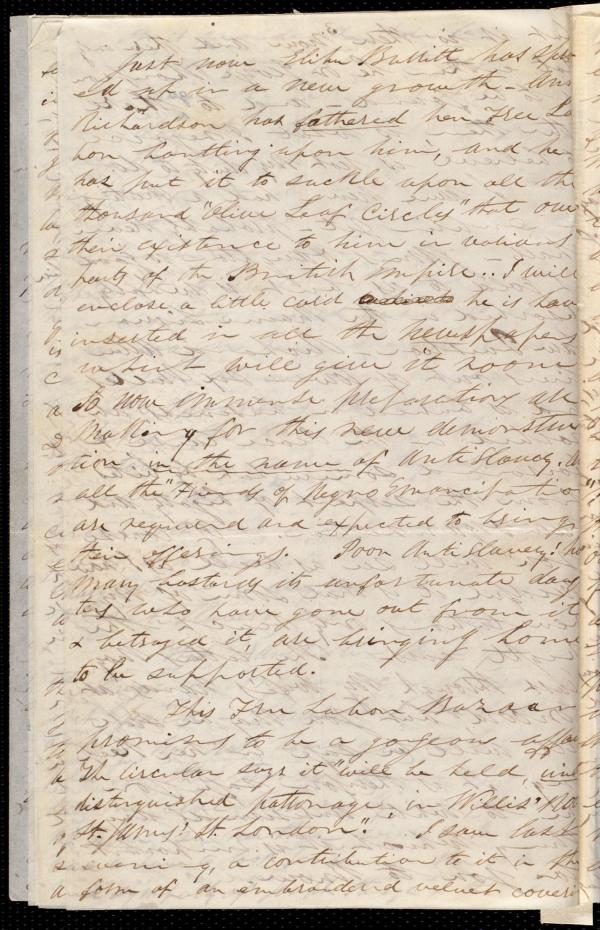 Just now Elihu Burritt has spr
ed up in a new growth - An
Richardson has fathered her Free La
bor bantling upon him, and he
has put it to suckle upon all the
thousand "Olive Leaf Circles" that owe
their existence to him in various
parts of the British Empire.. I will
enclose a little card he is hav
inserted in all the newspapers
which will give it room
So now immense preparations are
making for this new demonstra
tion in the name of Antislavery. A
all the "Friends of Negro Emancipatio
are required and expected to bring
their offerings. Poor Antislavery! ho
many bastards its unfortunate daug
ters who have gone out from it
& betrayed it, are bringing home
to be supported.
This Free Labor Bazaar
promises to be a gorgeous affai
The circular says it "will be held, und
distinguished patronage in Willis' Ro
St. James' St. London". I saw last
evening, a contribution to it in the
form of an embroidered velvet coveri